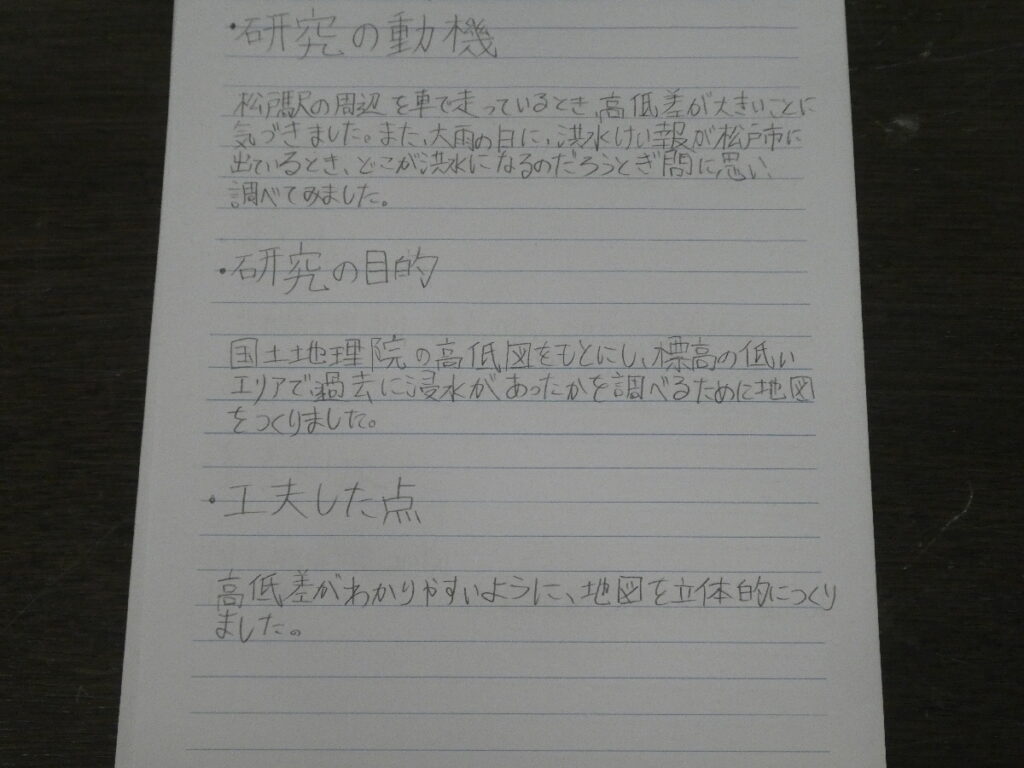 ・研究の動機
松戸駅の周辺を車で走っているとき、高低差が大きいことに
気づきました。また、大雨の日に、洪水けい報が松戸市に
出ているとき、どこが洪水になるのだろうとぎ問に思い、
調べてみました。
・研究の目的
国土地理院の高低図をもとにし、標高の低い
エリアで、過去に浸水があったかを調べるために地図
をつくりました。
・工夫した点
高低差がわかりやすいように、地図を立体的につくり
ました。